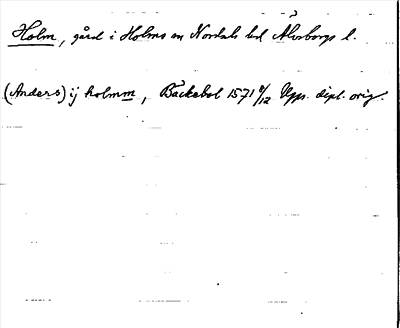 Holm, gård i Holms sn Nordals hd Älvsborgs l.
(Anders) ij holmm, Backabol 1571 8/12 Upps. dipl. orig.